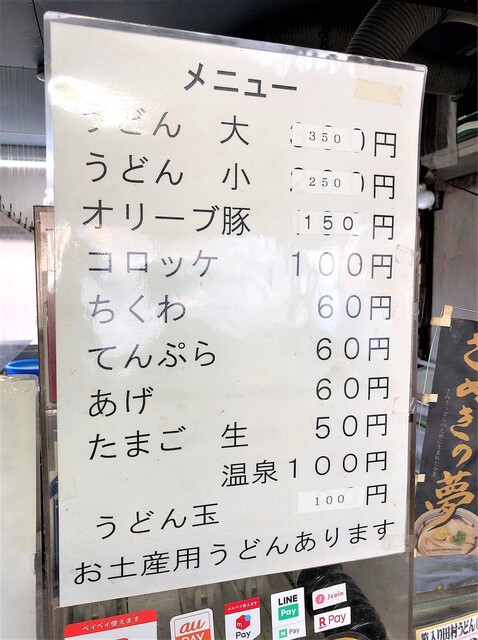 メニュー
うどん 大 350円
うどん 小 250円
オリーブ豚 150円
コロッケ 100円
ちくわ 60円
てんぷら 60円
あげ 60円
たまご 生 50円
温泉 100円
うどん玉 100円
お土産用うどんあります
さぬきの夢
ペイペイ使えます
au PAY
メルペイ使えます
Pay
LINE Pay
Pay
J-Coin
R Pay